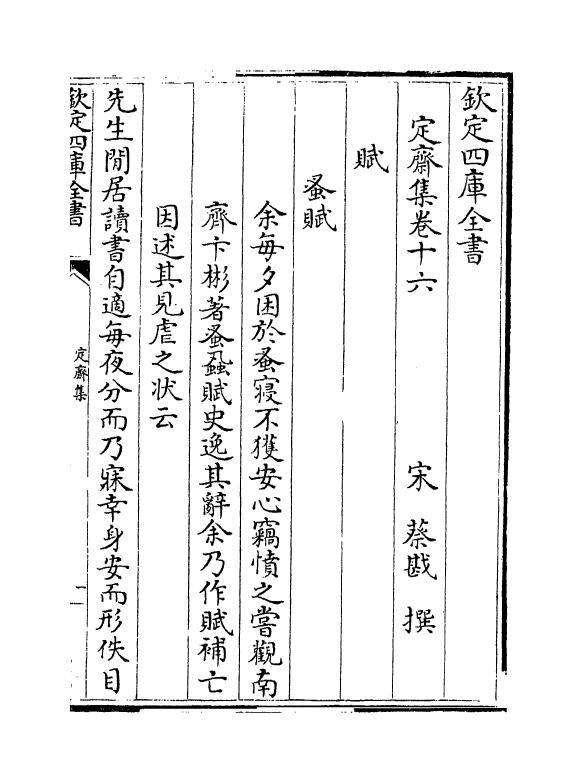 欽定四庫全書
定齋集卷十六
宋 蔡戡 撰
賦
蚤賦
余每夕困於蚤寢不獲安心竊憤之嘗觀南
齊卞彬著蚤蝨賦史逸其辭余乃作賦補亡
因述其見虐之状云
先生閒居讀書自適每夜分而乃寐幸身安而形佚目
欽定四庫全書
定齋集
一